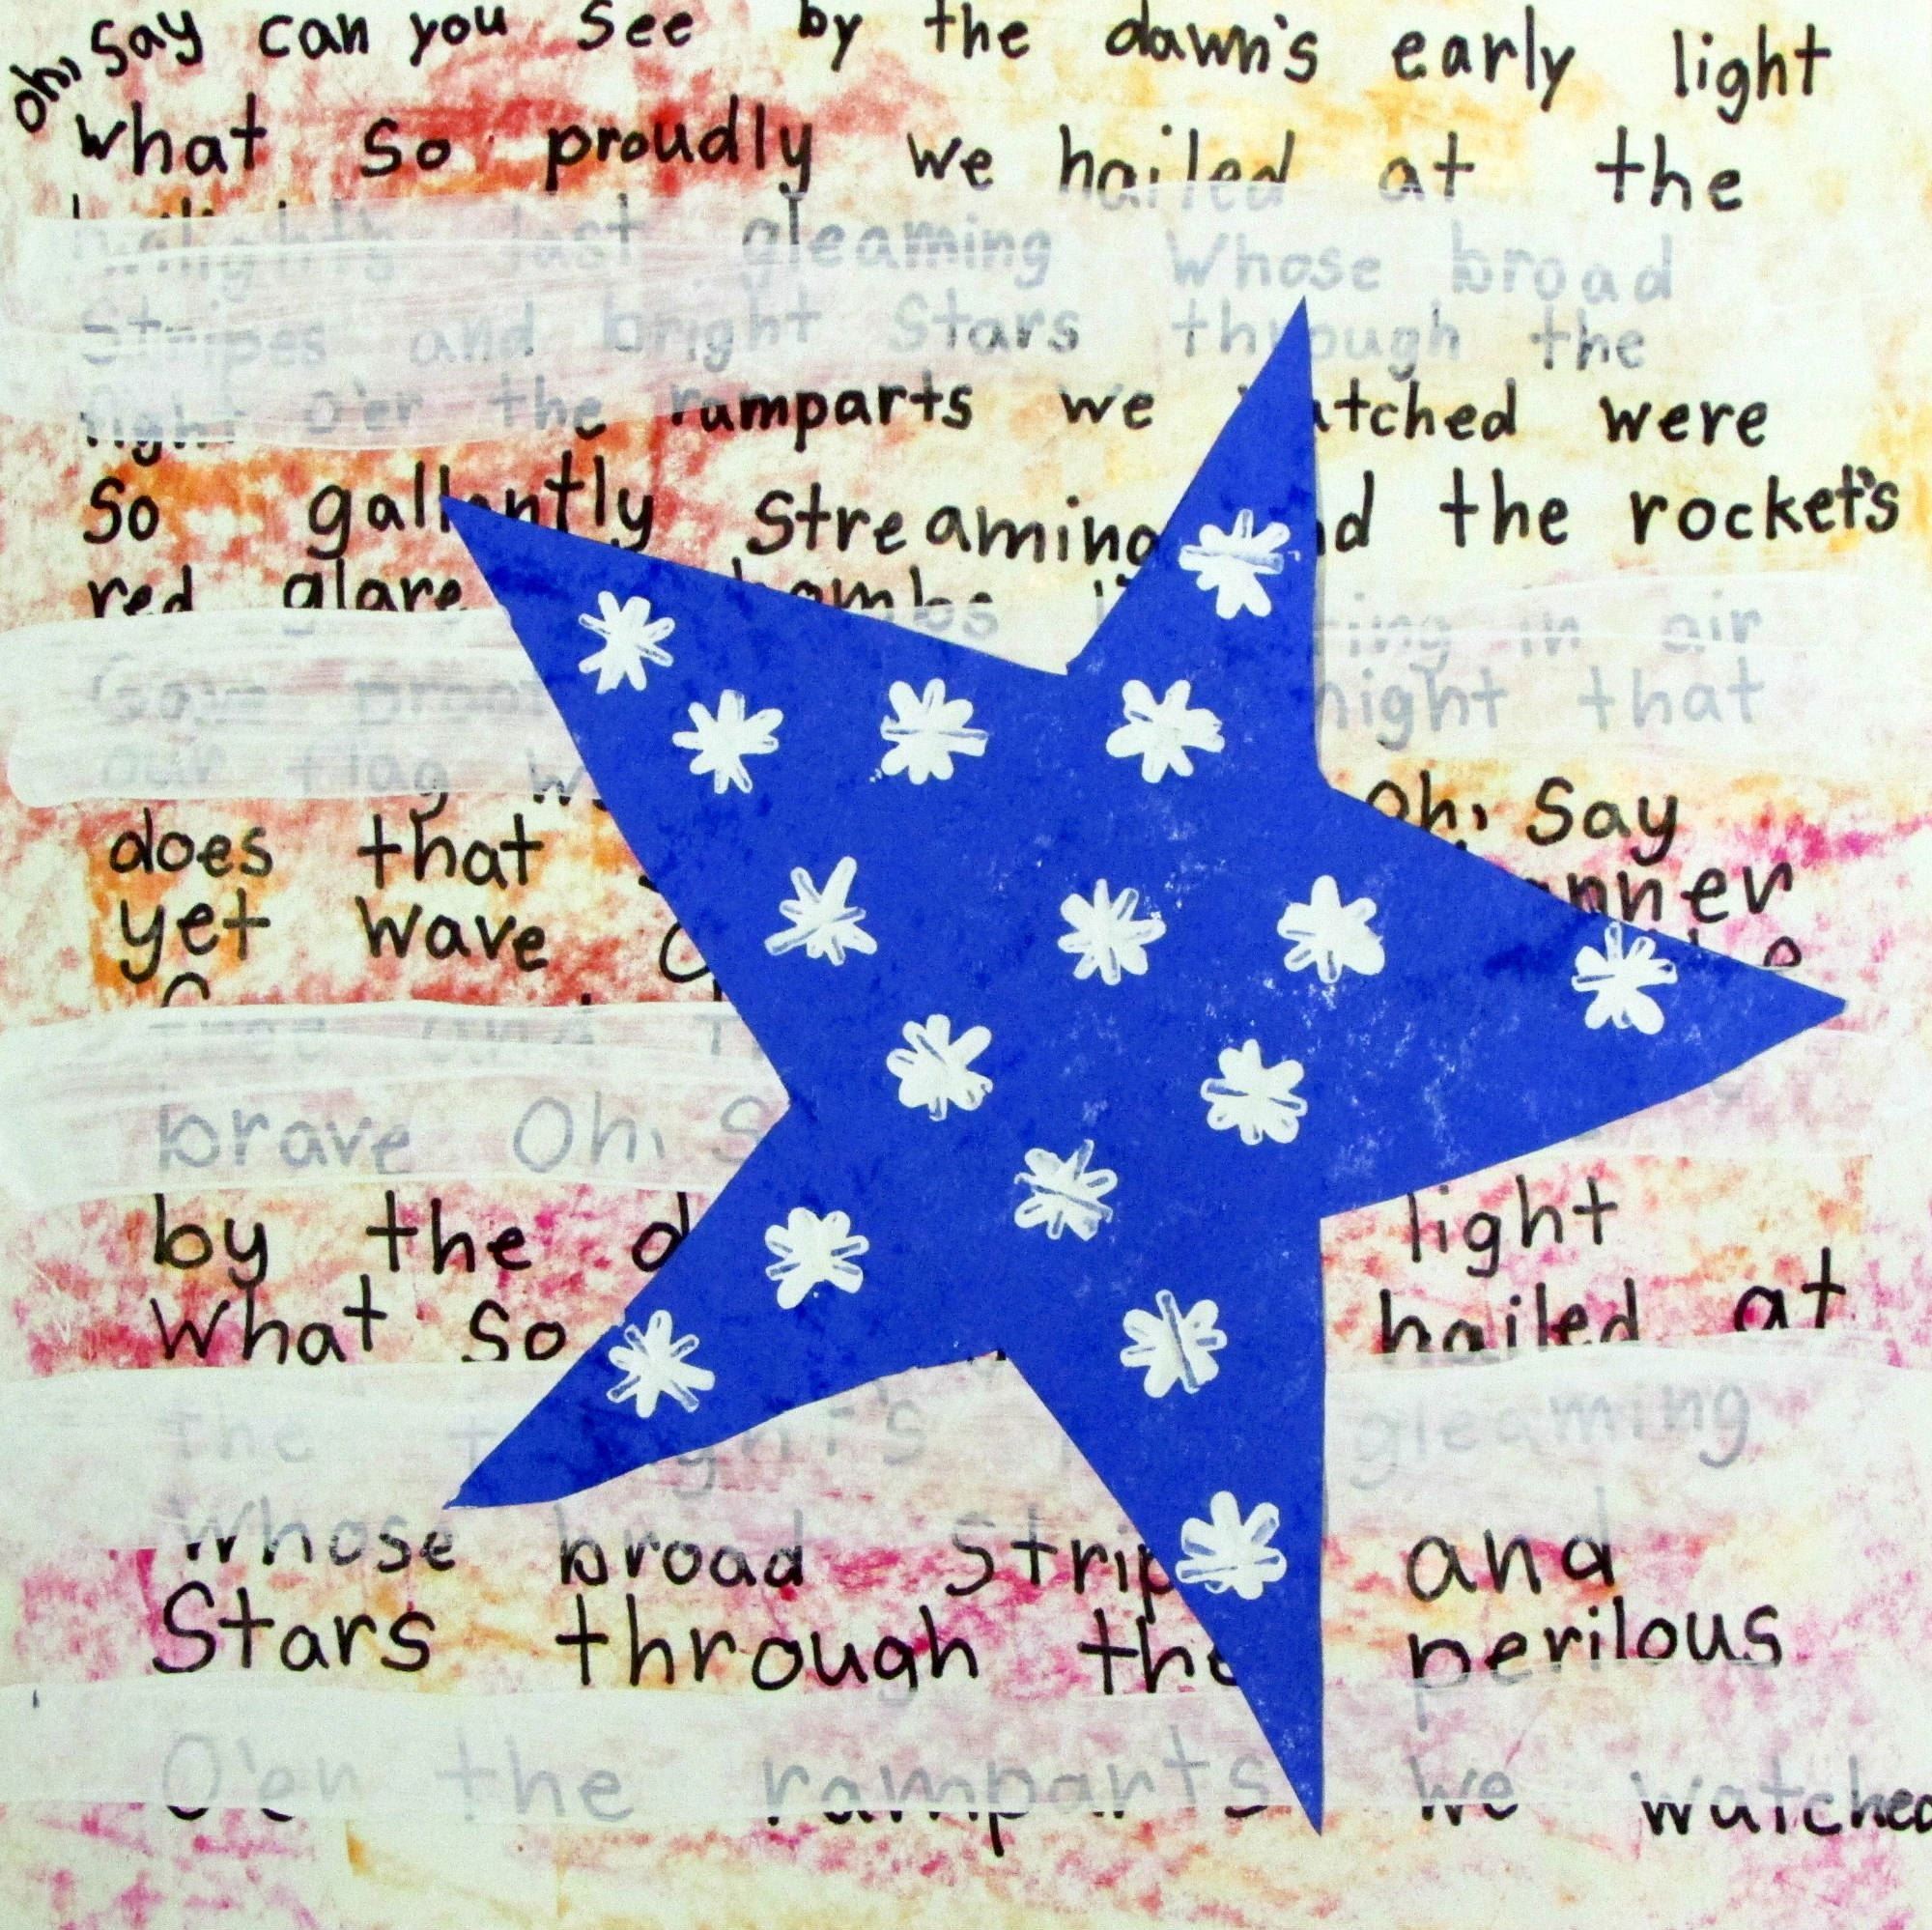 oh, Say can you see by the dawn's early light
what so proudly we hailed at the
last gleaming Whose broad
Stripes and bright Stars through the
fight o'er the ramparts we watched were
So gallantly streaming and the rocket's
red glare bombs in air
Gave proof night that
our flag Oh, Say
does that banner
yet wave
free and
brave Oh, S
by the d light
What So hailed at
the gleaming
Whose broad Strip and
Stars through the perilous
O'er the ramparts we watched